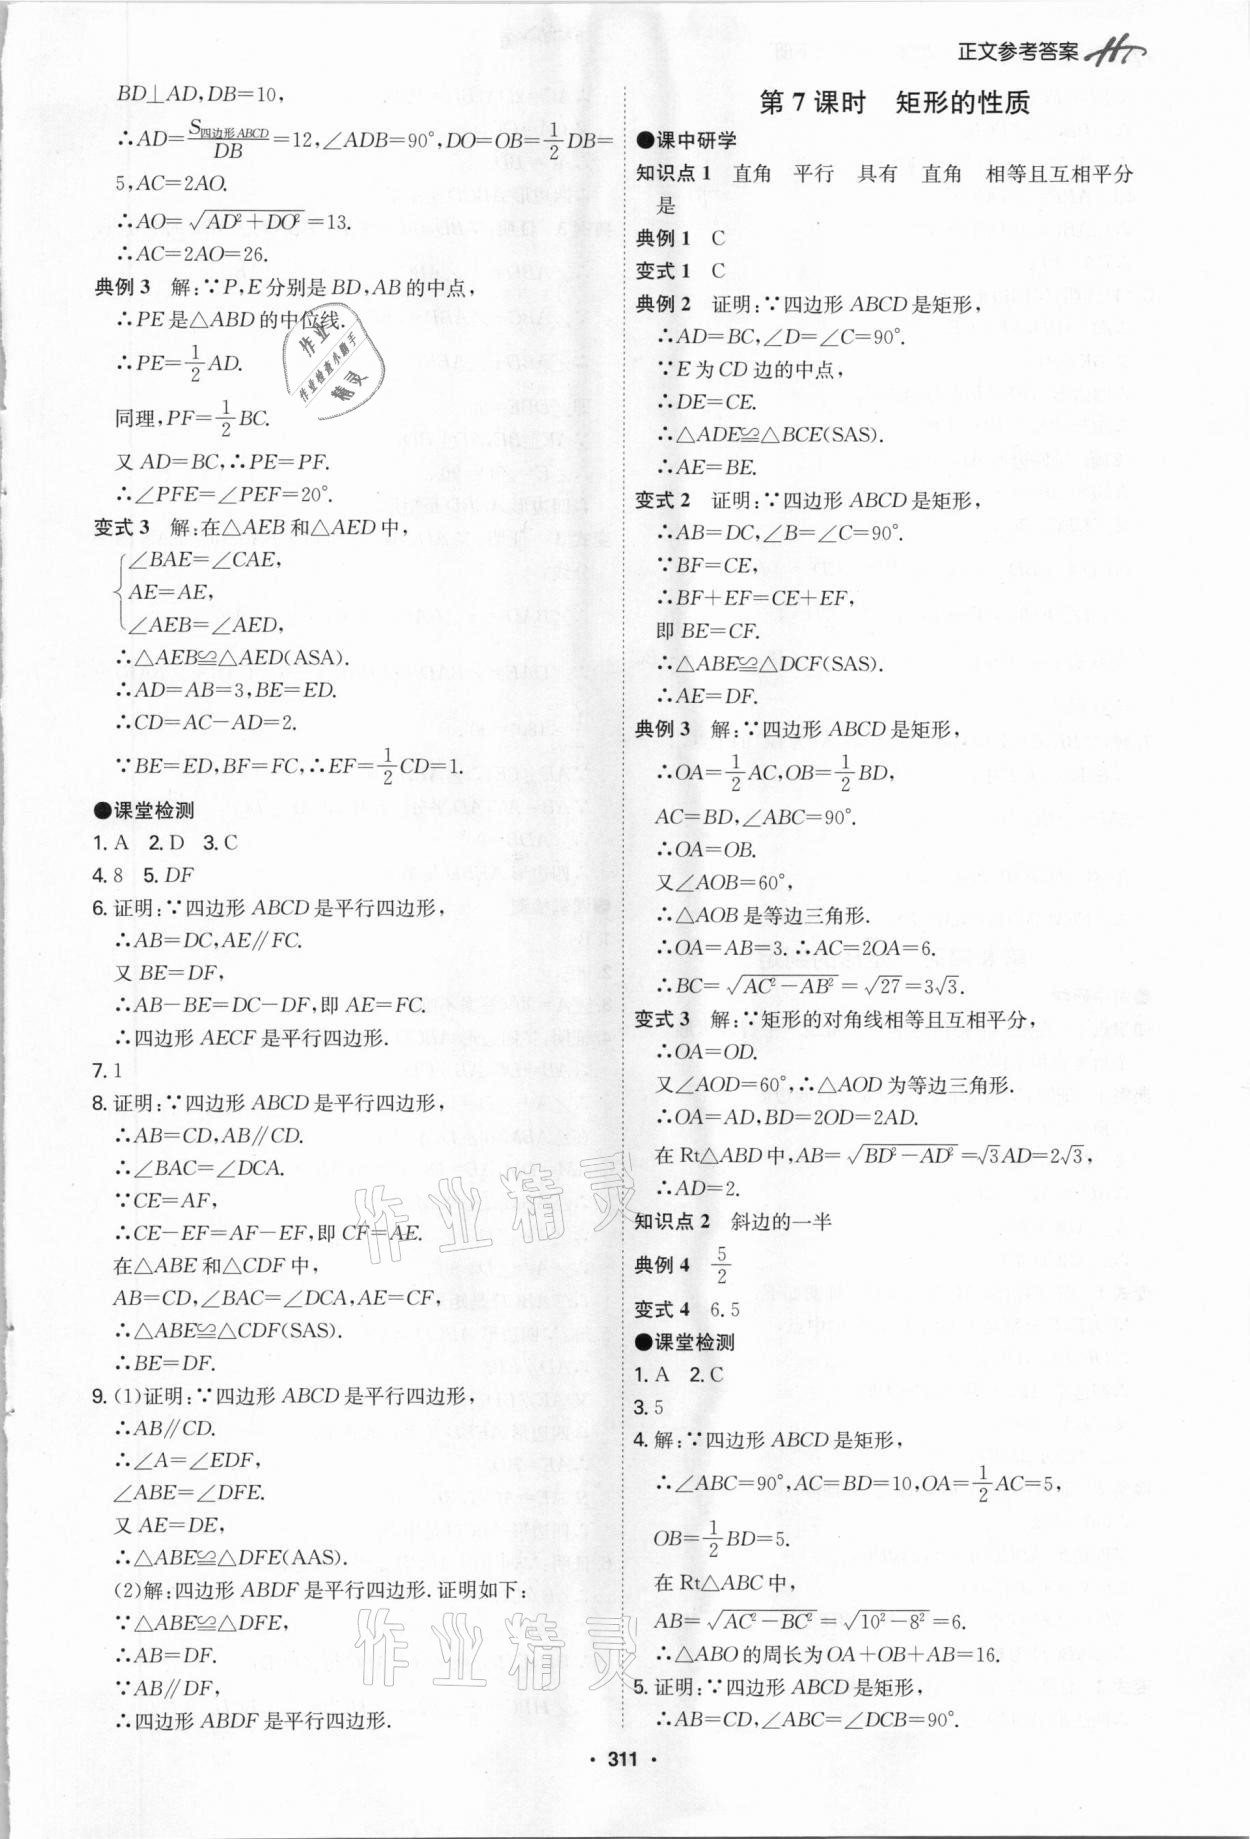 正文参考答案
BD⊥AD,DB=10,
∴AD=S四边形ABCD/DB=12,∠ADB=90°,DO=OB=1/2DB=
5,AC=2AO.
∴AO=√(AD²+DO²)=13.
∴AC=2AO=26.
典例 3 解:∵P,E分别是BD,AB的中点,
∴PE是△ABD的中位线.
∴PE=1/2AD.
同理,PF=1/2BC.
又AD=BC,∴PE=PF.
∴∠PFE=∠PEF=20°.
变式 3 解:在△AEB和△AED中,
∠BAE=∠CAE,
AE=AE,
∠AEB=∠AED,
∴△AEB≌△AED(ASA).
∴AD=AB=3,BE=ED.
∴CD=AC-AD=2.
∵BE=ED,BF=FC,∴EF=1/2CD=1.
●课堂检测
1. A 2. D 3. C
4. 8 5. DF
6. 证明:∵四边形ABCD是平行四边形,
∴AB=DC,AE∥FC.
又BE=DF,
∴AB-BE=DC-DF,即AE=FC.
∴四边形AECF是平行四边形.
7. 1
8. 证明:∵四边形ABCD是平行四边形,
∴AB=CD,AB∥CD.
∴∠BAC=∠DCA.
∵CE=AF,
∴CE-EF=AF-EF,即CF=AE.
在△ABE和△CDF中,
AB=CD,∠BAC=∠DCA,AE=CF,
∴△ABE≌△CDF(SAS).
∴BE=DF.
9. (1)证明:∵四边形ABCD是平行四边形,
∴AB∥CD.
∴∠A=∠EDF,
∠ABE=∠DFE.
又AE=DE,
∴△ABE≌△DFE(AAS).
(2)解:四边形ABDF是平行四边形.证明如下:
∵△ABE≌△DFE,
∴AB=DF.
∵AB∥DF,
∴四边形ABDF是平行四边形.
第7课时 矩形的性质
●课中研学
知识点 1 直角 平行 具有 直角 相等且互相平分
是
典例 1 C
变式 1 C
典例 2 证明:∵四边形ABCD是矩形,
∴AD=BC,∠D=∠C=90°.
∵E为CD边的中点,
∴DE=CE.
∴△ADE≌△BCE(SAS).
∴AE=BE.
变式 2 证明:∵四边形ABCD是矩形,
∴AB=DC,∠B=∠C=90°.
∵BF=CE,
∴BF+EF=CE+EF,
即BE=CF.
∴△ABE≌△DCF(SAS).
∴AE=DF.
典例 3 解:∵四边形ABCD是矩形,
∴OA=1/2AC,OB=1/2BD,
AC=BD,∠ABC=90°.
∴OA=OB.
又∠AOB=60°,
∴△AOB是等边三角形.
∴OA=AB=3.∴AC=2OA=6.
∴BC=√(AC²-AB²)=√27=3√3.
变式 3 解:∵矩形的对角线相等且互相平分,
∴OA=OD.
又∠AOD=60°,∴△AOD为等边三角形.
∴OA=AD,BD=2OD=2AD.
在Rt△ABD中,AB=√(BD²-AD²)=√3AD=2√3,
∴AD=2.
知识点 2 斜边的一半
典例 4 5/2
变式 4 6.5
●课堂检测
1. A 2. C
3. 5
4. 解:∵四边形ABCD是矩形,
∴∠ABC=90°,AC=BD=10,OA=1/2AC=5,
OB=1/2BD=5.
在Rt△ABC中,
AB=√(AC²-BC²)=√(10²-8²)=6.
∴△ABO的周长为OA+OB+AB=16.
5. 证明:∵四边形ABCD是矩形,
∴AB=CD,∠ABC=∠DCB=90°.
·311·
作业
作业检查小助手
精灵
作业精灵
作业精灵